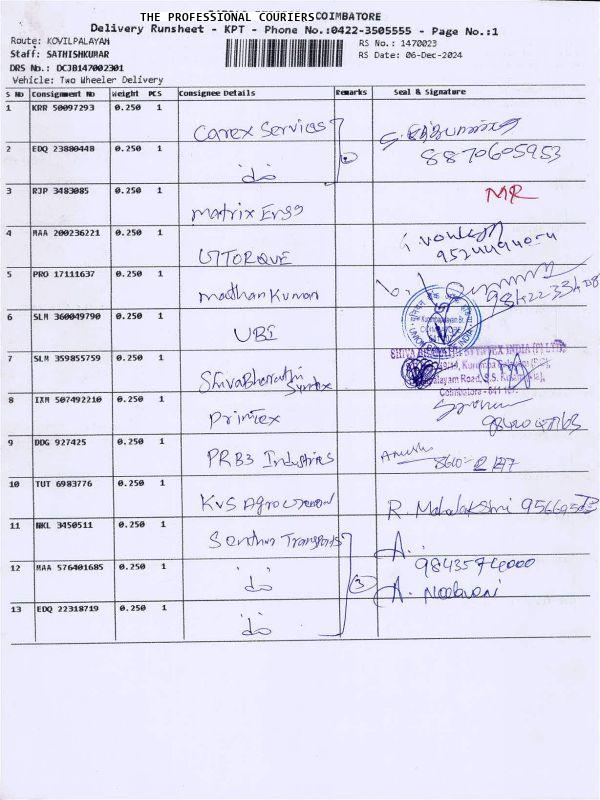 THE PROFESSIONAL COURIERS COIMBATORE
Delivery Runsheet - KPT - Phone No.:0422-3505555 - Page No.:1
Route: KOVILPALAYAM
RS No.: 1470023
Staff: SATHISHKUMAR
RS Date: 06-Dec-2024
DRS No.: DCJB147002301
Vehicle: Two Wheeler Delivery
S No Consignment No Weight PCS Consignee Details Remarks Seal & Signature
1 KRR 50097293 0.250 1 Carex Services
2 EDQ 23880448 0.250 1 do 8870605953
3 RJP 3483085 0.250 1 Matrix Engg MR
4 MAA 200236221 0.250 1 UTTORQUE
5 PRO 17111637 0.250 1 Madhan Kumar
6 SLM 360049790 0.250 1 UBI
7 SLM 359855759 0.250 1 ShivaBharathi Syntex
SHIVA BHARATHI SYNTEX INDIA (P) LTD.,
Coimbatore - 641 107.
8 IXM 507492210 0.250 1 Printex
9 DDG 927425 0.250 1 PRB3 Industries
10 TUT 6983776 0.250 1 KVS Agro R. Mahalakshmi
11 NKL 3450511 0.250 1 Senthur Transports A.
12 MAA 576401685 0.250 1 do 3 9843574000
A.
13 EDQ 22318719 0.250 1 do